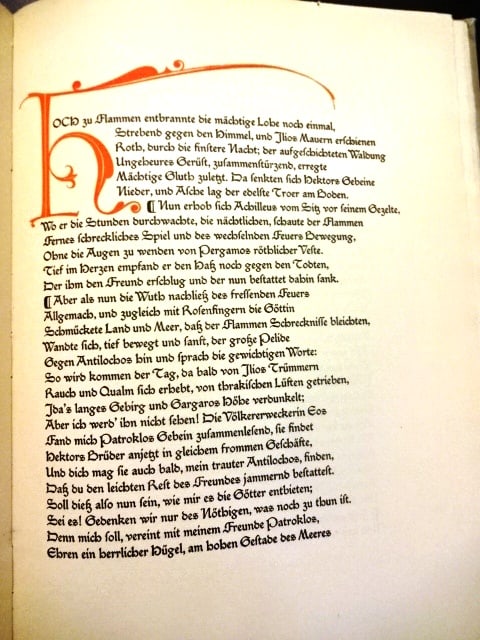 HOCH zu Flammen entbrannte die mächtige Lohe noch einmal,
Strebend gegen den Himmel, und Ilios Mauern erschienen
Roth, durch die finstere Nacht; der aufgeschichteten Waldung
Ungeheures Gerüst, zusammenstürzend, erregte
Mächtige Gluth zuletzt. Da senkten sich Hektors Gebeine
Nieder, und Asche lag der edelste Troer am Boden.
¶ Nun erhob sich Achilleus vom Sitz vor seinem Gezelte,
Wo er die Stunden durchwachte, die nächtlichen, schaute der Flammen
Fernes schreckliches Spiel und des wechselnden Feuers Bewegung,
Ohne die Augen zu wenden von Pergamos röthlicher Veste.
Tief im Herzen empfand er den Haß noch gegen den Todten,
Der ihm den Freund erschlug und der nun bestattet dahin sank.
¶ Aber als nun die Wuth nachließ des fressenden Feuers
Allgemach, und zugleich mit Rosenfingern die Göttin
Schmückete Land und Meer, daß der Flammen Schrecknisse bleichten,
Wandte sich, tief bewegt und sanft, der große Pelide
Gegen Antilochos hin und sprach die gewichtigen Worte:
So wird kommen der Tag, da bald von Ilios Trümmern
Rauch und Qualm sich erhebt, von thrakischen Lüften getrieben,
Ida's langes Gebirg und Gargaros Höhe verdunkelt;
Aber ich werd' ihn nicht sehen! Die Völkererweckerin Eos
Fand mich Patroklos Gebein zusammenlesend, sie findet
Hektors Brüder anjetzt in gleichem frommen Geschäfte,
Und dich mag sie auch bald, mein trauter Antilochos, finden,
Daß du den leichten Rest des Freundes jammernd bestattest.
Soll dieß also nun sein, wie mir es die Götter entbieten;
Sei es! Gedenken wir nur des Nöthigen, was noch zu thun ist.
Denn mich soll, vereint mit meinem Freunde Patroklos,
Ehren ein herrlicher Hügel, am hohen Gestade des Meeres